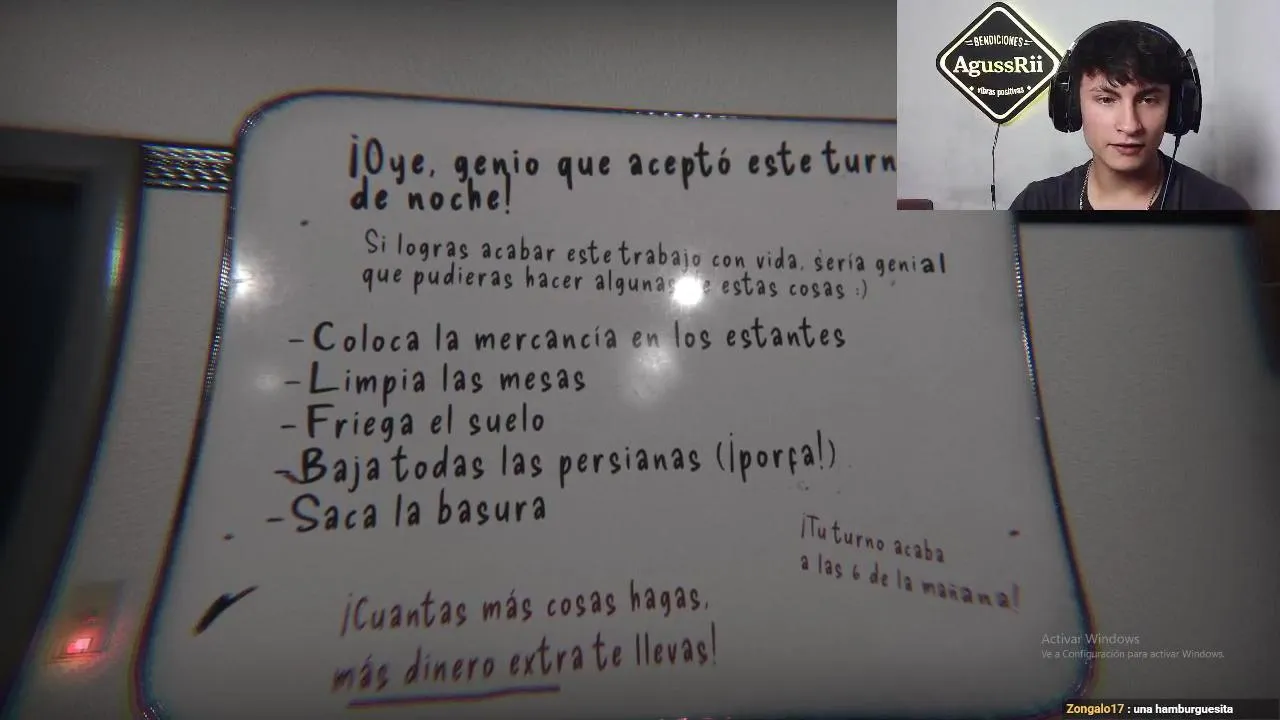 BENDICIONES
AgussRii
vibras positivas
¡Oye, genio que aceptó este turn
de noche!
Si logras acabar este trabajo con vida, sería genial
que pudieras hacer algunas de estas cosas :)
- Coloca la mercancía en los estantes
- Limpia las mesas
- Friega el suelo
- Baja todas las persianas (¡porfa!)
- Saca la basura
¡Tu turno acaba
a las 6 de la mañana!
¡Cuantas más cosas hagas,
más dinero extra te llevas!
Activar Windows
Ve a Configuración para activar Windows.
Zongalo17 : una hamburguesita